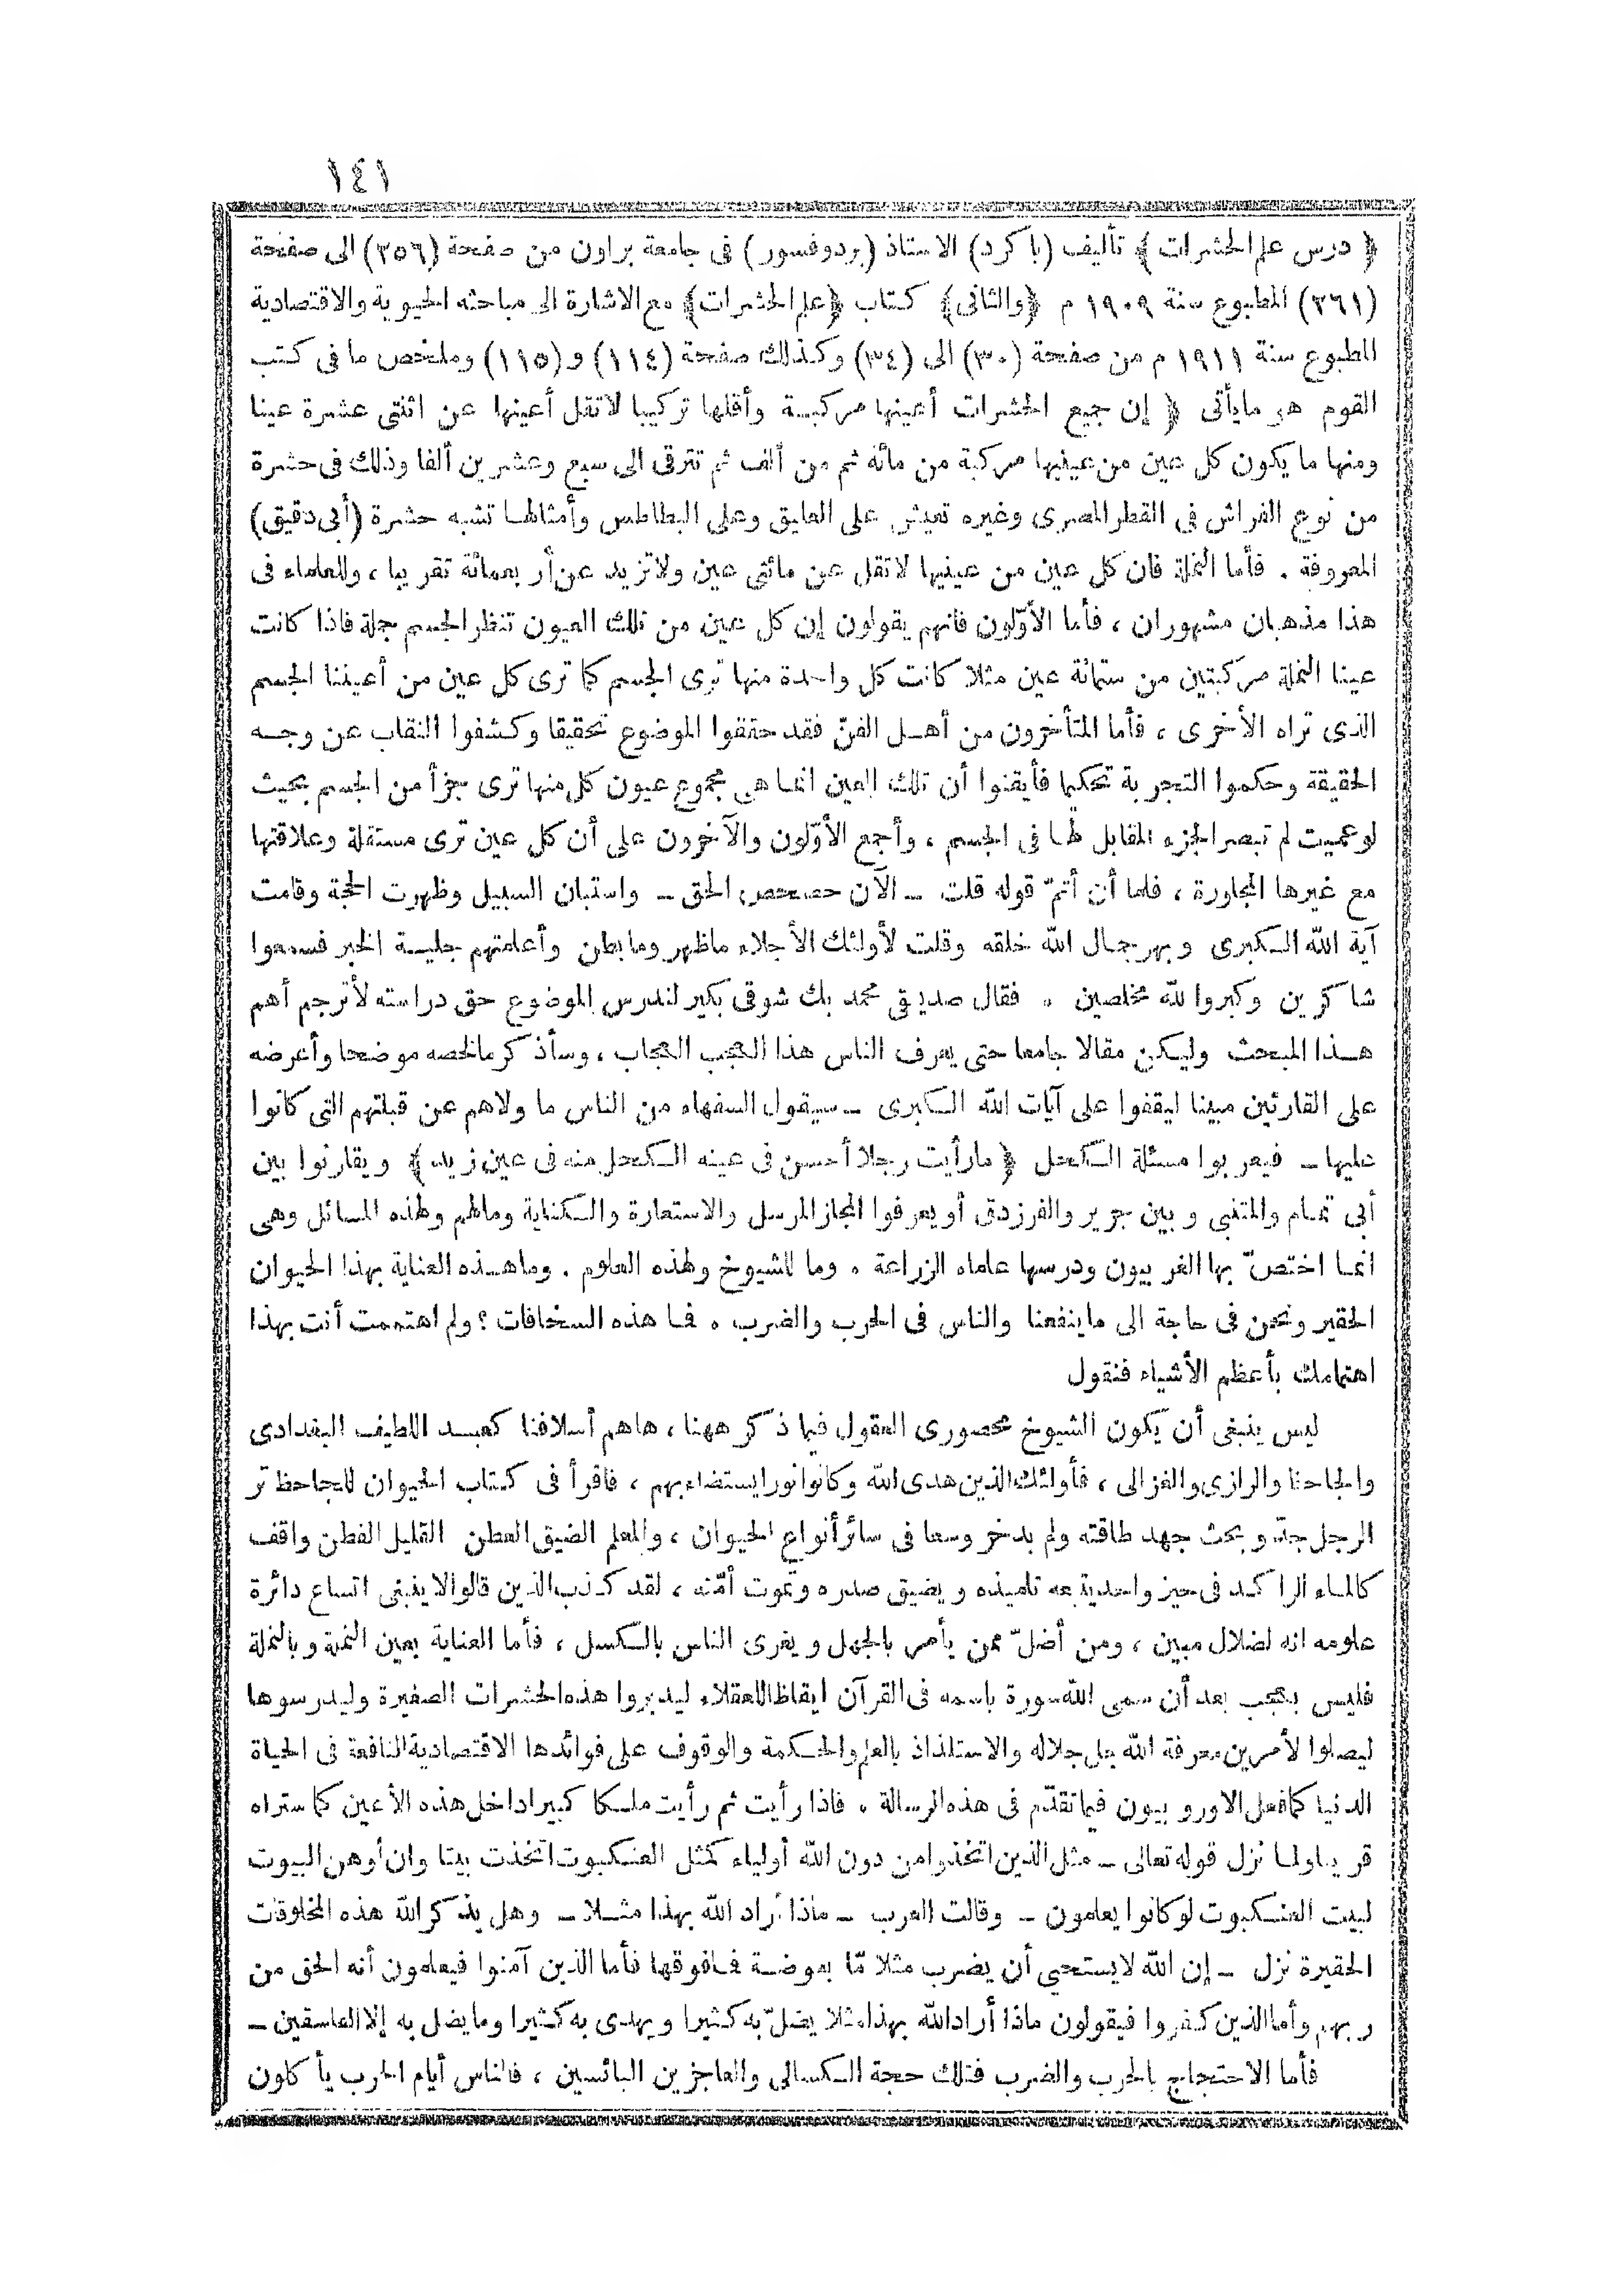 ١٤١
﴿ درس علم الحشرات ﴾ تأليف (باكرد) الاستاذ (بردوفسور) فى جامعة براون من صفحة (٣٥٦) الى صفحة
(٣٦١) المطبوع سنة ١٩٠٩ م ﴿والثانى﴾ كتاب ﴿علم الحشرات﴾ مع الاشارة الى مباحثه الحيوية والاقتصادية
المطبوع سنة ١٩١١ م من صفحة (٣٠) الى (٣٤) وكذلك صفحة (١١٤) و (١١٥) وملخص ما فى كتب
القوم هو مايأتى ﴿ إن جميع الحشرات أعينها مركبة وأقلها تركيبا لاتقل أعينها عن اثنتى عشرة عينا
ومنها ما يكون كل عين من عينيها مركبة من مائة ثم من ألف ثم تترقى الى سبع وعشرين ألفا وذلك فى حشرة
من نوع الفراش فى القطر المصرى وغيره تعيش على العليق وعلى البطاطس وأمثالها تشبه حشرة (أبى دقيق)
المعروفة . فأما النملة فان كل عين من عينيها لاتقل عن مائتى عين ولاتزيد عن أربعمائة تقريبا ، وللعلماء فى
هذا مذهبان مشهوران ، فأما الأوّلون فانهم يقولون إن كل عين من تلك العيون تنظر الجسم جملة فاذا كانت
عينا النملة مركبتين من ستمائة عين مثلا كانت كل واحدة منها ترى الجسم كما ترى كل عين من أعيننا الجسم
الذى تراه الأخرى ، فأما المتأخرون من أهل الفنّ فقد حققوا الموضوع تحقيقا وكشفوا النقاب عن وجه
الحقيقة وحكموا التجربة تحكيما فأيقنوا أن تلك العين انما هى مجموع عيون كل منها ترى جزأ من الجسم بحيث
لو عميت لم تبصر الجزء المقابل لها فى الجسم ، وأجمع الأوّلون والآخرون على أن كل عين ترى مستقلة وعلاقتها
مع غيرها المجاورة ، فلما أن أتمّ قوله قلت ــ الآن حصحص الحق ــ واستبان السبيل وظهرت الحجة وقامت
آية الله الكبرى وبهر جمال الله خلقه وقلت لأولئك الأجلاء ماظهر ومابطن وأعلمتهم جلية الخبر فسمعوا
شاكرين وكبروا لله مخلصين . فقال صديقى محمد بك شوقى بكير لندرس الموضوع حق دراسته لأترجم أهم
هذا المبحث وليكن مقالا جامعا حتى يعرف الناس هذا العجب العجاب ، وسأذكر مالخصه موضحا وأعرضه
على القارئين مبينا ليقفوا على آيات الله الكبرى ــ سيقول السفهاء من الناس ما ولاهم عن قبلتهم التى كانوا
عليها ــ فيعربوا مسئلة الكحل ﴿ مارأيت رجلا أحسن فى عينه الكحل منه فى عين زيد ﴾ ويقارنوا بين
أبى تمام والمتنبى وبين جرير والفرزدق أو يعرفوا المجاز المرسل والاستعارة والكناية ومالهم ولهذه المسائل وهى
انما اختصّ بها الغربيون ودرسها علماء الزراعة . وما للشيوخ ولهذه العلوم . وماهذه العناية بهذا الحيوان
الحقير ونحن فى حاجة الى ماينفعنا والناس فى الحرب والضرب . فما هذه السخافات ؟ ولم اهتممت أنت بهذا
اهتمامك بأعظم الأشياء فنقول
ليس ينبغى أن يكون الشيوخ محصورى العقول فيما ذكر ههنا ، هاهم أسلافنا كعبد اللطيف البغدادى
والجاحظ والرازى والغزالى ، فأولئك الذين هدى الله وكانوا نورا يستضاء بهم ، فاقرأ فى كتاب الحيوان للجاحظ تر
الرجل جدّ وبحث جهد طاقته ولم يدخر وسعا فى سائر أنواع الحيوان ، والمعلم الضيق العطن القليل الفطن واقف
كالماء الراكد فى حيز واحد يتبعه تلميذه ويضيق صدره وتموت أمّته ، لقد كذب الذين قالوا لا ينبغى اتساع دائرة
علومه انه لضلال مبين ، ومن أضلّ ممن يأمر بالجهل ويغرى الناس بالكسل ، فأما العناية بعين النملة وبالنملة
فليس بعجب بعد أن سمى الله سورة باسمه فى القرآن ايقاظا للعقلاء ليدبروا هذه الحشرات الصغيرة وليدرسوها
ليصلوا لأمرين معرفة الله جل جلاله والاستلذاذ بالعلم والحكمة والوقوف على فوائدها الاقتصادية النافعة فى الحياة
الدنيا كما فعل الاوروبيون فيما تقدّم فى هذه الرسالة . فاذا رأيت ثم رأيت ملكا كبيرا داخل هذه الأعين كما ستراه
قريبا ولما نزل قوله تعالى ــ مثل الذين اتخذوا من دون الله أولياء كمثل العنكبوت اتخذت بيتا وان أوهن البيوت
لبيت العنكبوت لوكانوا يعلمون ــ وقالت العرب ــ ماذا أراد الله بهذا مثلا ــ وهل يذكر الله هذه المخلوقات
الحقيرة نزل ــ إن الله لا يستحيى أن يضرب مثلا مّا بعوضة فمافوقها فأما الذين آمنوا فيعلمون أنه الحق من
ربهم وأما الذين كفروا فيقولون ماذا أراد الله بهذا مثلا يضلّ به كثيرا ويهدى به كثيرا ومايضل به إلا الفاسقين ــ
فأما الاحتجاج بالحرب والضرب فتلك حجة الكسالى والعاجزين البائسين ، فالناس أيام الحرب يأكلون